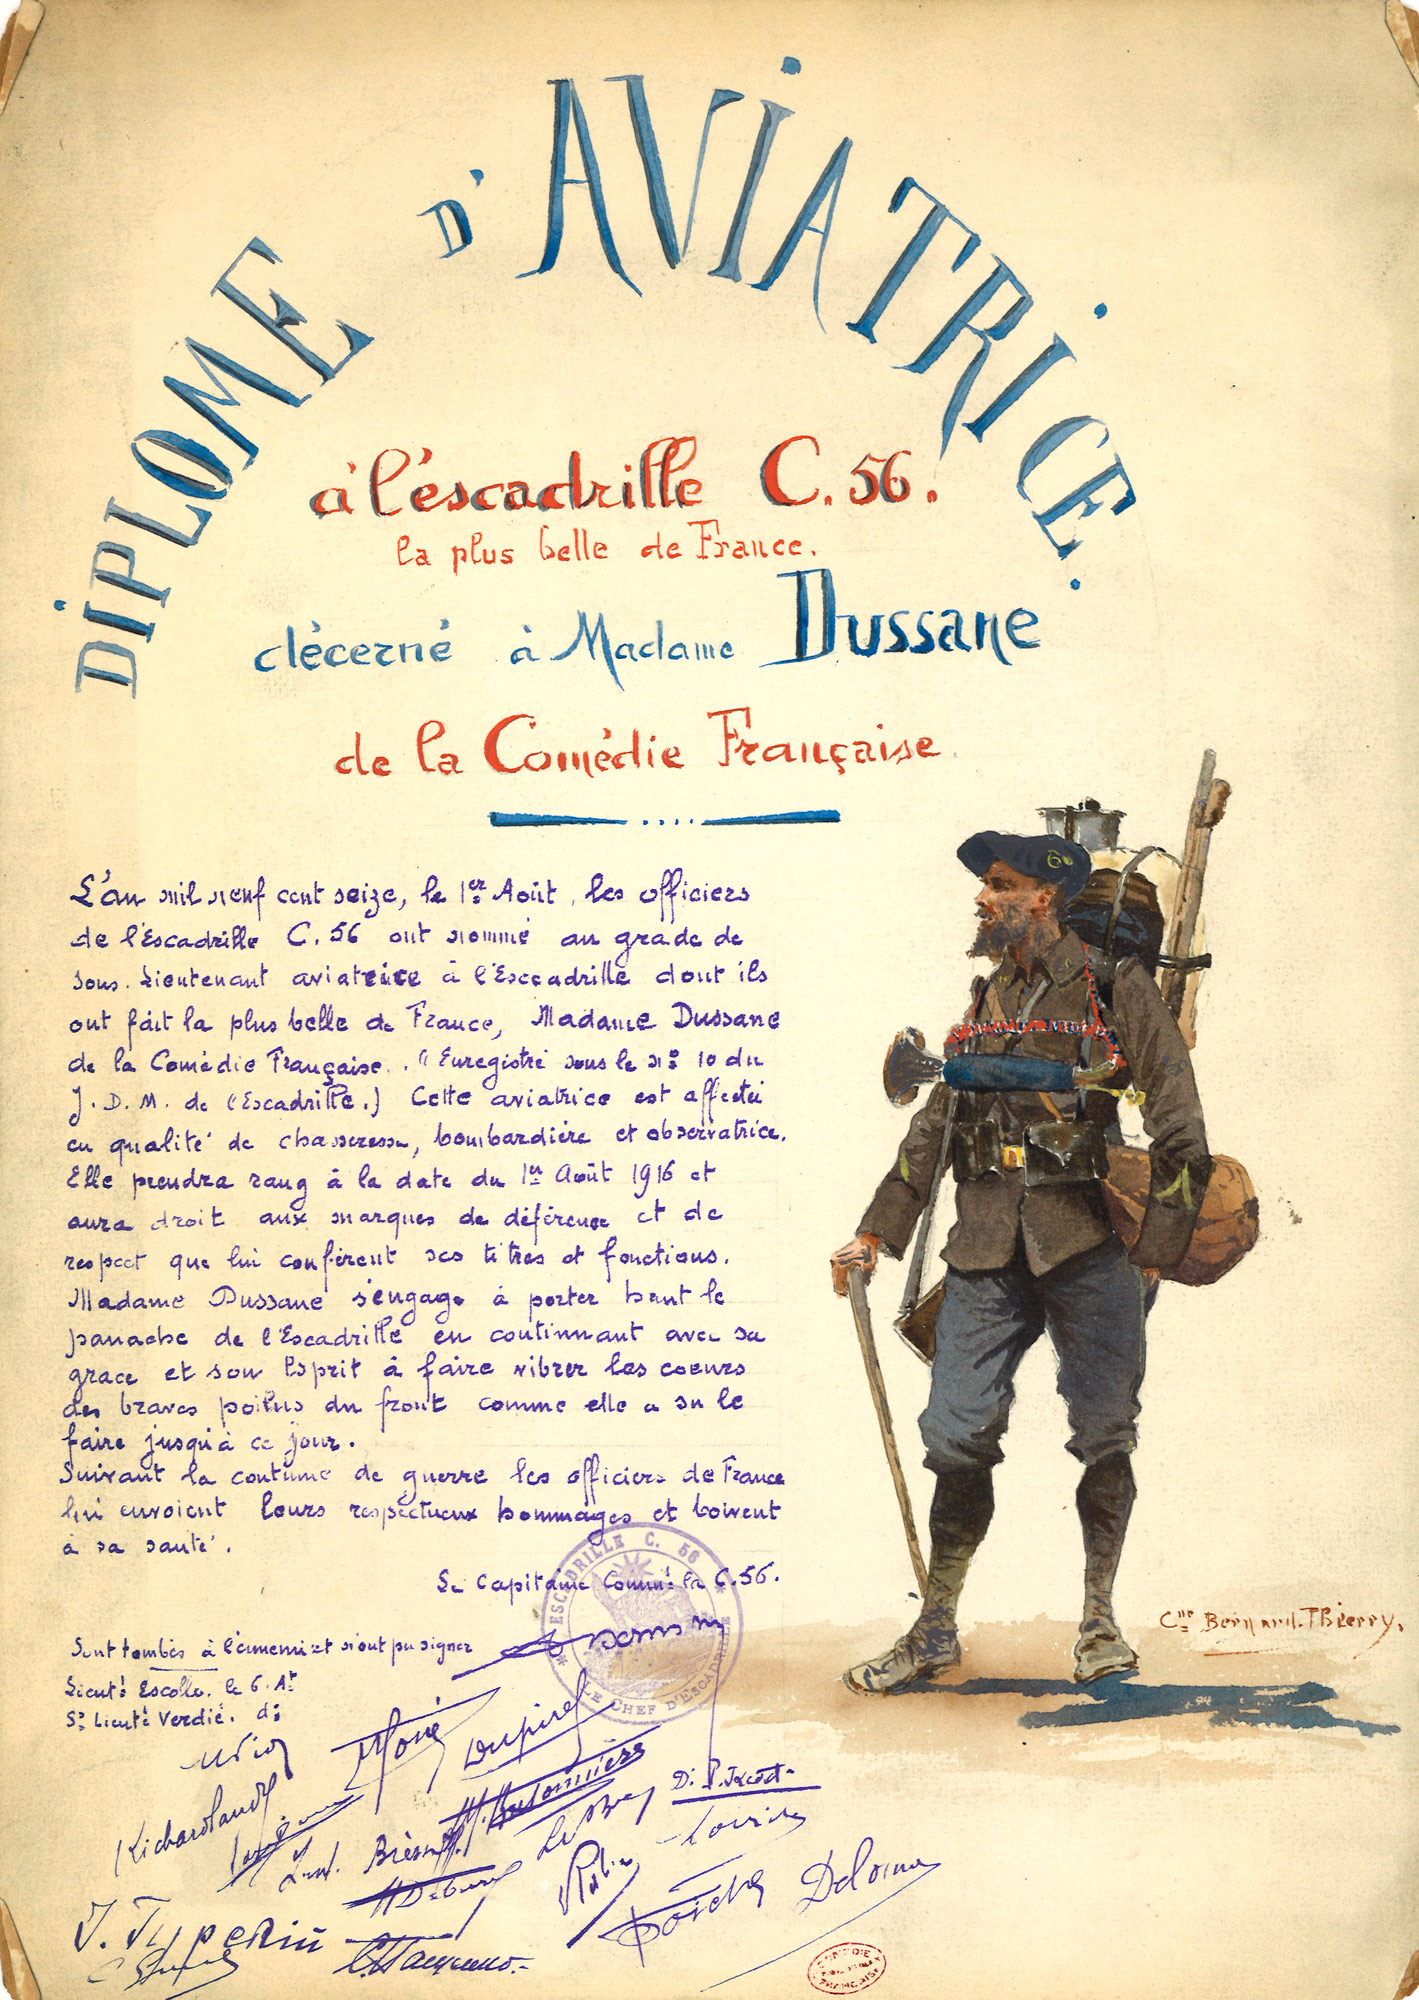 DiPLOME D'AViATRiCE.
à l'éscadrille C. 56.
la plus belle de France.
décerné à Madame Dussane
de la Comédie Française
L'an mil neuf cent seize, le 1er Août, les officiers
de l'Escadrille C. 56 ont nommé au grade de
sous-Lieutenant aviatrice à l'Escadrille dont ils
ont fait la plus belle de France, Madame Dussane
de la Comédie Française. (Enregistré sous le no 10 du
J. D. M. de l'Escadrille.) Cette aviatrice est affectée
en qualité de chasseresse, bombardière et observatrice.
Elle prendra rang à la date du 1er Août 1916 et
aura droit aux marques de déférence et de
respect que lui confèrent ses titres et fonctions.
Madame Dussane s'engage à porter haut le
panache de l'Escadrille en continuant avec sa
grace et son Esprit à faire vibrer les coeurs
des braves poilus du front comme elle a su le
faire jusqu'à ce jour.
Suivant la coutume de guerre les officiers de France
lui envoient leurs respectueux hommages et boivent
à sa santé.
Le Capitaine Commt la C.56.
ESCADRILLE C. 56
LE CHEF D'ESCADRILLE
Sont tombés à l'ennemi et n'ont pu signer
Lieutt Escolle. le 6. At
Ss Lieutt Verdié. do
Cne Bernard-Thierry.
Richardland
Dupirel
Robin
Delorme
COMÉDIE
FRANÇAISE